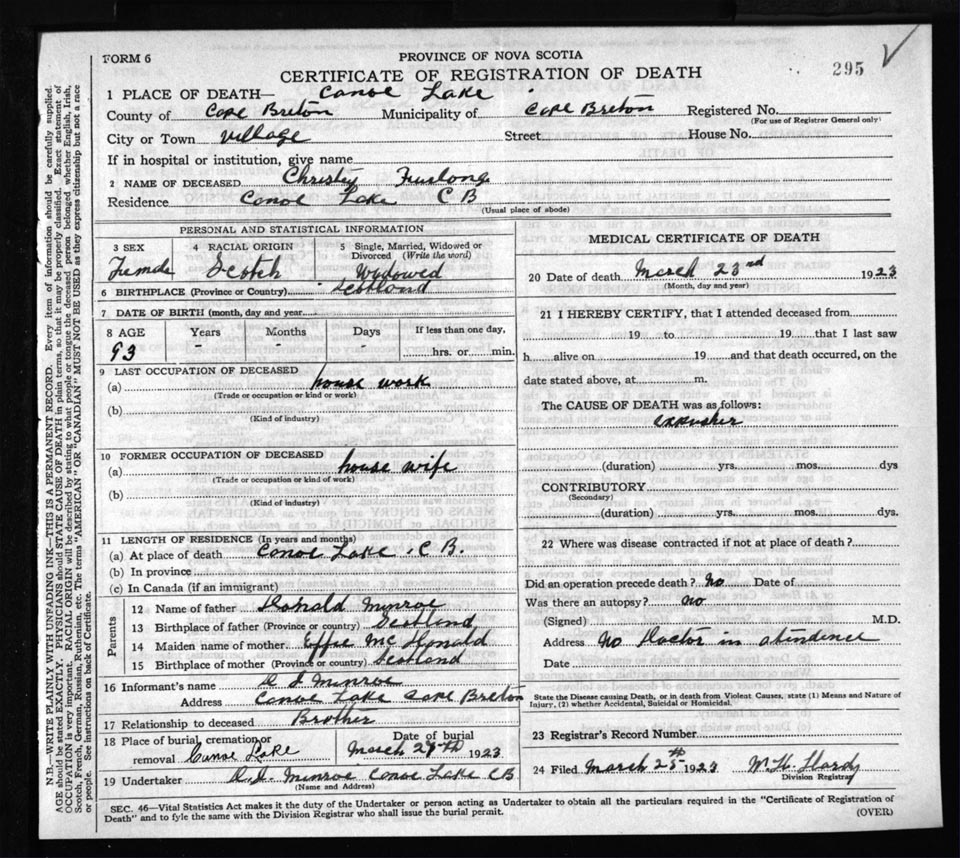 FORM 6
PROVINCE OF NOVA SCOTIA
295
CERTIFICATE OF REGISTRATION OF DEATH
1 PLACE OF DEATH— Canoe Lake
County of Cape Breton Municipality of Cape Breton Registered No.
(For use of Registrar General only)
City or Town Village Street House No.
If in hospital or institution, give name
2 NAME OF DECEASED Christy Furlong
Residence Canoe Lake C B
(Usual place of abode)
PERSONAL AND STATISTICAL INFORMATION
3 SEX 4 RACIAL ORIGIN 5 Single, Married, Widowed or Divorced (Write the word)
Female Scotch Widowed
6 BIRTHPLACE (Province or Country) Scotland
7 DATE OF BIRTH (month, day and year)
8 AGE Years Months Days If less than one day,
93 - - - hrs. or min.
9 LAST OCCUPATION OF DECEASED
(a) house work
(Trade or occupation or kind or work)
(b)
(Kind of industry)
10 FORMER OCCUPATION OF DECEASED
(a) house wife
(Trade or occupation or kind of work)
(b)
(Kind of industry)
11 LENGTH OF RESIDENCE (In years and months)
(a) At place of death Canoe Lake . C B.
(b) In province
(c) In Canada (if an immigrant)
Parents
12 Name of father Donald Munroe
13 Birthplace of father (Province or country) Scotland
14 Maiden name of mother Effie McDonald
15 Birthplace of mother (Province or country) Scotland
16 Informant's name D J Munroe
Address Canoe Lake Cape Breton
17 Relationship to deceased Brother
18 Place of burial, cremation or removal Date of burial
Canoe Lake March 1923
19 Undertaker D. J. Munroe Canoe Lake CB
(Name and Address)
MEDICAL CERTIFICATE OF DEATH
20 Date of death March 23rd 1923
(Month, day and year)
21 I HEREBY CERTIFY, that I attended deceased from
19 to 19 that I last saw
h alive on 19 and that death occurred, on the
date stated above, at m.
The CAUSE OF DEATH was as follows:
(duration) yrs. mos. dys
CONTRIBUTORY
(Secondary)
(duration) yrs. mos. dys.
22 Where was disease contracted if not at place of death?
Did an operation precede death? No Date of
Was there an autopsy? No
(Signed) M.D.
Address No Doctor in atendence
Date
State the Disease causing Death, or in death from Violent Causes, state (1) Means and Nature of
Injury, (2) whether Accidental, Suicidal or Homicidal.
23 Registrar's Record Number
24 Filed March 25th 1923 M. H. Hardy
Division Registrar
SEC. 46—Vital Statistics Act makes it the duty of the Undertaker or person acting as Undertaker to obtain all the particulars required in the "Certificate of Registration of
Death" and to fyle the same with the Division Registrar who shall issue the burial permit.
(OVER)
N.B.—WRITE PLAINLY WITH UNFADING INK—THIS IS A PERMANENT RECORD. Every item of information should be carefully supplied.
AGE should be stated EXACTLY. PHYSICIANS should STATE CAUSE OF DEATH in plain terms, so that it may be properly classified. Exact statement of
OCCUPATION is very important. RACIAL ORIGIN will be described by stating to what people or tongue the deceased person belonged, whether English, Irish,
Scotch, French, German, Russian, Ruthenian, etc. The terms "AMERICAN" OR "CANADIAN" MUST NOT BE USED as they express citizenship but not a race
or people. See instructions on back of Certificate.